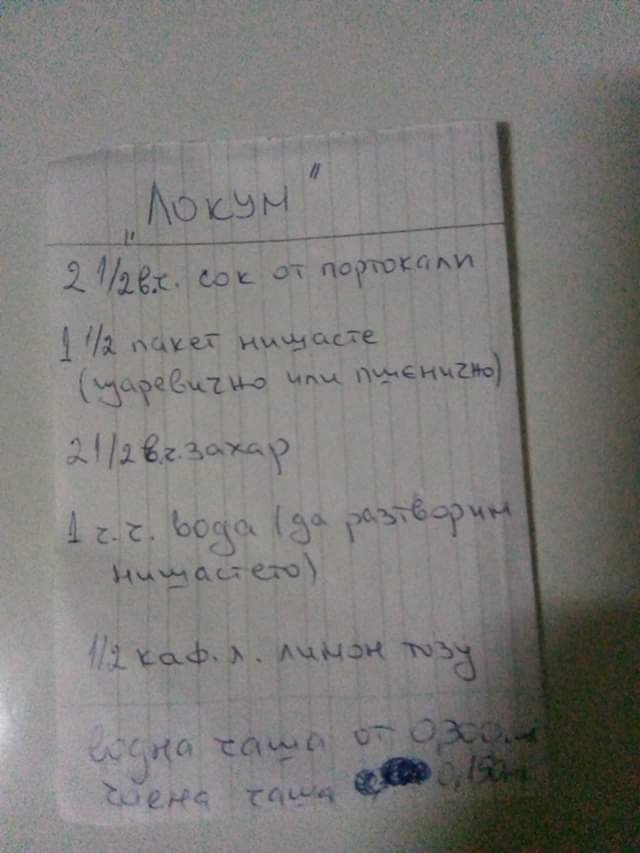 „Локум"
2 1/2 в.ч. сок от портокали
1 1/2 пакет нищасте
(царевично или пшенично)
2 1/2 в.ч. захар
1 ч.ч. вода (да разтворим
нищастето)
1/2 каф. л. лимон тозу
водна чаша от 0,300
чаена чаша 0,150